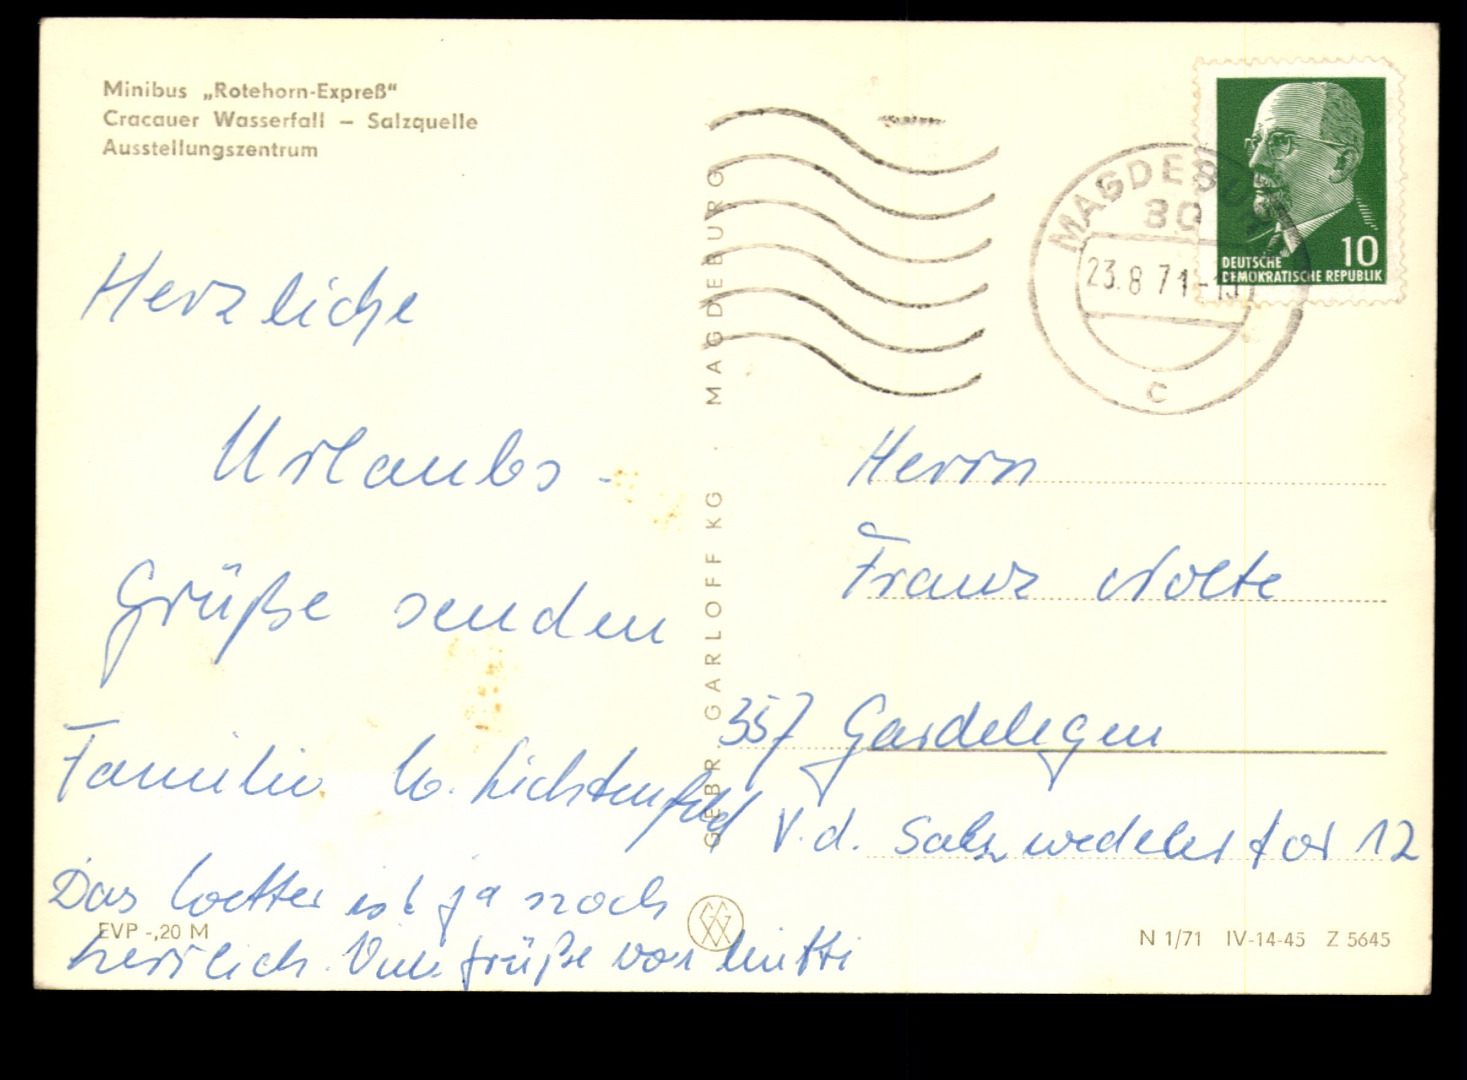 Minibus „Rotehorn-Expreß“
Cracauer Wasserfall – Salzquelle
Ausstellungszentrum
Herzliche
Urlaubs-
Grüße senden
Familie W. Lichtenfeld
Das Wetter ist ja noch
herrlich. Viele Grüße von Mutti
EVP -,20 M
GEBR. GARLOFF KG · MAGDEBURG
MAGDEBURG
30
23.8.71-
C
10
DEUTSCHE
DEMOKRATISCHE REPUBLIK
Herrn
Franz Nolte
357 Gardelegen
V.d. Salzwedeler tor 12
N 1/71 IV-14-45 Z 5645